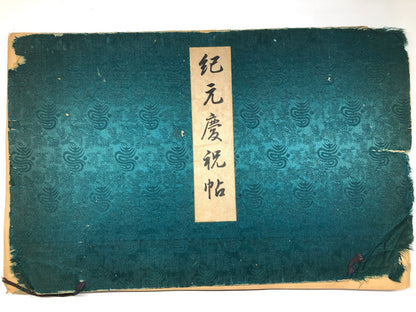 紀元慶祝帖